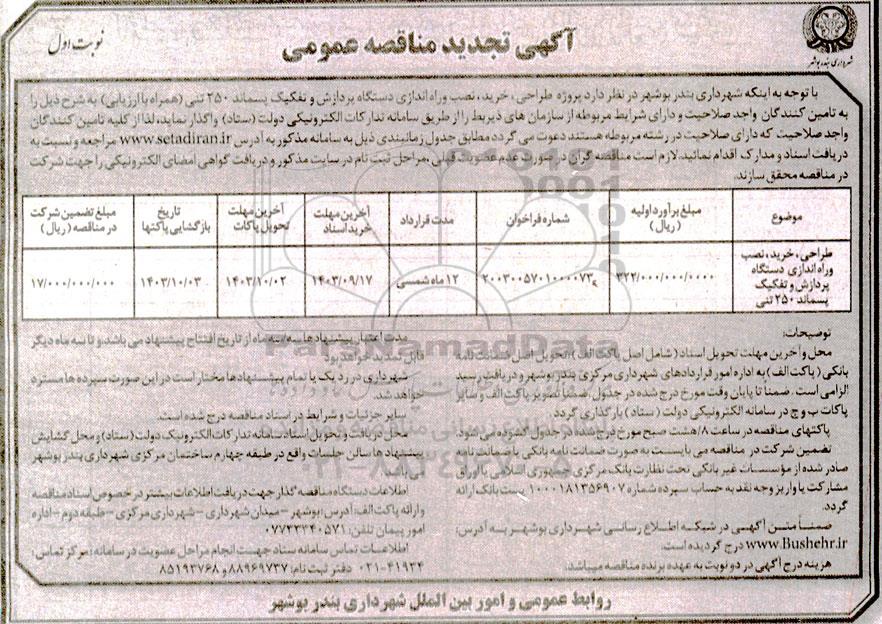 آگهی تجدید مناقصه عمومی
نوبت اول
شهرداری بندر بوشهر
با توجه به اینکه شهرداری بندر بوشهر در نظر دارد پروژه طراحی، خرید، نصب وراه اندازی دستگاه پردازش و تفکیک پسماند ۲۵۰ تنی (همراه با ارزیابی) به شرح ذیل را
به تامین کنندگان واجد صلاحیت و دارای شرایط مربوطه از سازمان های ذیربط را از طریق سامانه تدارکات الکترونیکی دولت (ستاد) واگذار نماید، لذا از کلیه تامین کنندگان
واجد صلاحیت که دارای صلاحیت در رشته مربوطه هستند دعوت می گردد مطابق جدول زمانبندی ذیل به سامانه مذکور به آدرس www.setadiran.ir مراجعه و نسبت به
دریافت اسناد و مدارک اقدام نمائید، لازم است مناقصه گران در صورت عدم عضویت قبلی، مراحل ثبت نام در سایت مذکور و دریافت گواهی امضای الکترونیکی را جهت شرکت
در مناقصه محقق سازند.
موضوع | مبلغ برآورد اولیه (ریال) | شماره فراخوان | مدت قرارداد | آخرین مهلت خرید اسناد | آخرین مهلت تحویل پاکات | تاریخ بازگشایی پاکتها | مبلغ تضمین شرکت در مناقصه (ریال)
طراحی، خرید، نصب وراه اندازی دستگاه پردازش و تفکیک پسماند ۲۵۰ تنی | ۳۲۲/۰۰۰/۰۰۰/۰۰۰۰ | ۲۰۰۳۰۰۵۷۰۱۰۰۰۰۷۳ | ۱۲ ماه شمسی | ۱۴۰۳/۰۹/۱۷ | ۱۴۰۳/۱۰/۰۲ | ۱۴۰۳/۱۰/۰۳ | ۱۷/۰۰۰/۰۰۰/۰۰۰
توضیحات:
محل و آخرین مهلت تحویل اسناد (شامل اصل پاکت الف) تحویل اصل ضمانت نامه
بانکی (پاکت الف) به اداره امور قراردادهای شهرداری مرکزی بندر بوشهر و دریافت رسید
الزامی است. ضمنا تا پایان وقت مورخ درج شده در جدول، ضمنا تصویر پاکت الف و سایر
پاکات ب و ج در سامانه الکترونیکی دولت (ستاد) بارگذاری گردد.
پاکتهای مناقصه در ساعت ۸/هشت صبح مورخ درج شده در جدول گشوده می شود.
تضمین شرکت در مناقصه می بایست به صورت ضمانت نامه بانکی یا ضمانت نامه
صادر شده از مؤسسات غیر بانکی تحت نظارت بانک مرکزی جمهوری اسلامی یا اوراق
مشارکت یا واریز وجه نقد به حساب سپرده شماره ۱۰۰۰۱۸۱۳۵۶۹۰۷ پست بانک ارائه
گردد.
ضمنا متن آگهی در شبکه اطلاع رسانی شهرداری بوشهر به آدرس:
www.Bushehr.ir درج گردیده است.
هزینه درج آگهی در دو نوبت به عهده برنده مناقصه میباشد.
مدت اعتبار پیشنهادها سه/سه ماه از تاریخ افتتاح پیشنهاد می باشد، و تا سه ماه دیگر
قابل تمدید خواهد بود
شهرداری در رد یک یا تمام پیشنهادها مختار است در این صورت سپرده ها مسترد
خواهد شد.
سایر جزئیات و شرایط در اسناد مناقصه درج شده است.
محل دریافت و تحویل اسناد سامانه تدارکات الکترونیک دولت (ستاد) و محل گشایش
پیشنهاد ها سالن جلسات واقع در طبقه چهارم ساختمان مرکزی شهرداری بندر بوشهر
می باشد.
اطلاعات دستگاه مناقصه گذار جهت دریافت اطلاعات بیشتر در خصوص اسناد مناقصه
و ارائه پاکت الف: آدرس: بوشهر - میدان شهرداری - شهرداری مرکزی - طبقه دوم - اداره
امور پیمان تلفن: ۰۷۷۳۳۳۴۰۵۷۱
اطلاعات تماس سامانه ستاد جهت انجام مراحل عضویت در سامانه: مرکز تماس:
۰۲۱-۴۱۹۳۴ دفتر ثبت نام: ۸۸۹۶۹۷۳۷ و ۸۵۱۹۳۷۶۸
روابط عمومی و امور بین الملل شهرداری بندر بوشهر
ParsNamadData